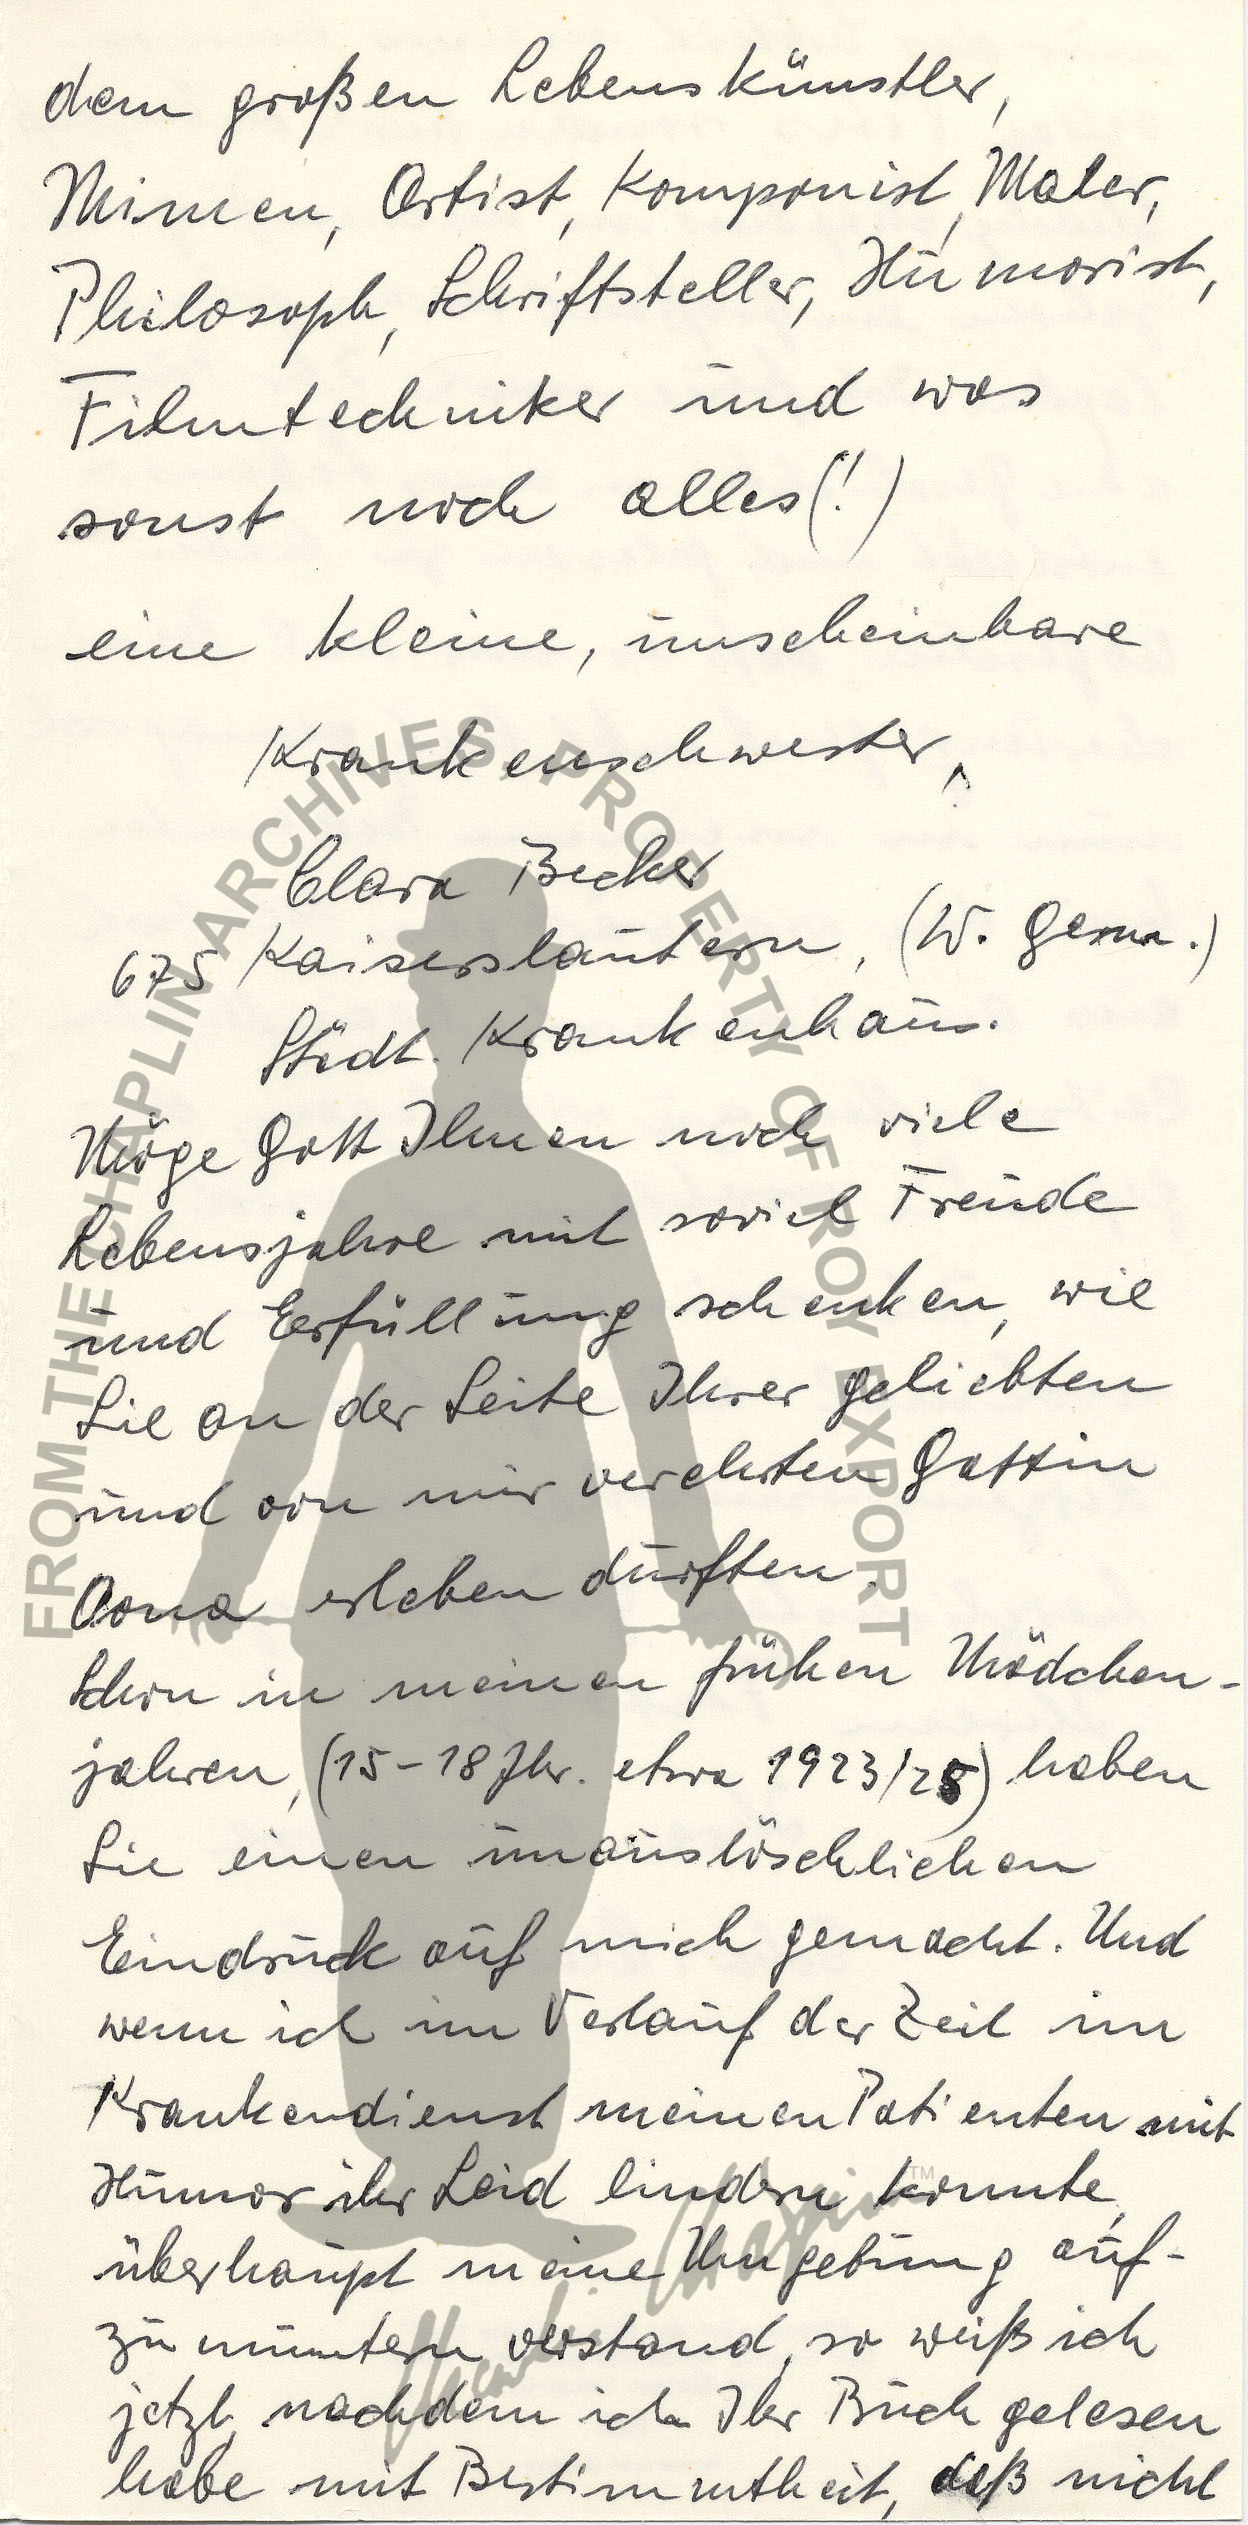 dem großen Lebenskünstler,
Mimen, Artist, Komponist, Maler,
Philosoph, Schriftsteller, Humorist,
Filmtechniker und was
sonst noch alles(!)
eine kleine, unscheinbare
Krankenschwester,
Clara Becker
675 Kaiserslautern, (W. Germ.)
Städt. Krankenhaus.
Möge Gott Ihnen noch viele
Lebensjahre mit soviel Freude
und Erfüllung schenken, wie
Sie an der Seite Ihrer geliebten
und von mir verehrten Gattin
Oona erleben durften.
Schon in meinen frühen Mädchen-
jahren, (15-18 Jhr. etwa 1923/25) haben
Sie einen unauslöschlichen
Eindruck auf mich gemacht. Und
wenn ich im Verlauf der Zeit im
Krankendienst meinen Patienten mit
Humor ihr Leid lindern konnte,
überhaupt meine Umgebung auf-
zumuntern verstand, so weiß ich
jetzt, nachdem ich Ihr Buch gelesen
habe mit Bestimmtheit, daß nicht
FROM THE CHAPLIN ARCHIVES, PROPERTY OF ROY EXPORT
Charlie Chaplin™